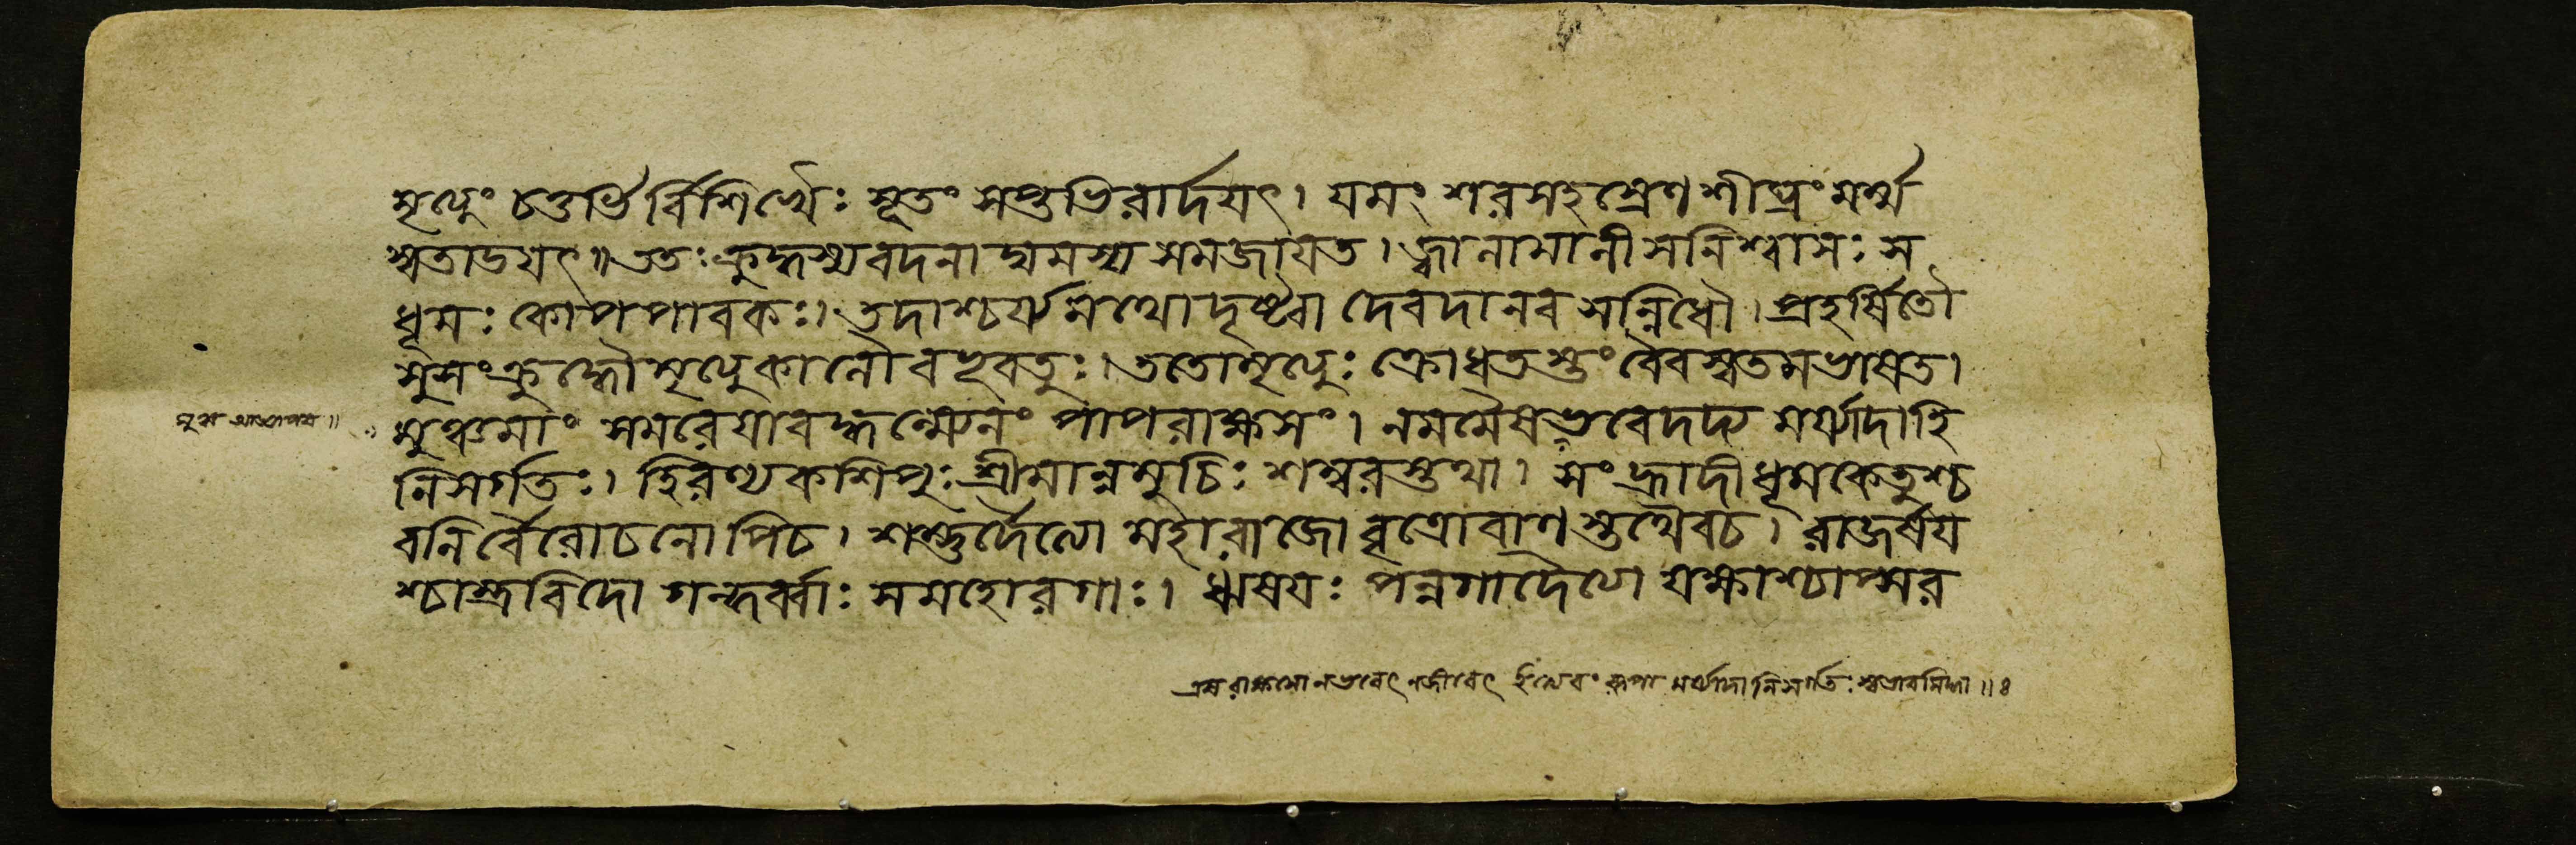 মৃত্যুং চতুর্ভির্বিশিখৈঃ সূতং সপ্তভিরার্দয়ৎ। যমং শরসহস্রেণ শীঘ্রং মর্ম্ম
স্বতাডয়ৎ॥ ততঃ ক্রুদ্ধস্য বদনাদ্যমস্য সমজায়ত। জ্বালামালী সনিশ্বাসঃ স
ধূমঃ কোপপাবকঃ। তদাশ্চর্য্যমথো দৃষ্ট্বা দেবদানবসন্নিধৌ। প্রহর্ষিতৌ
সুসংক্রুদ্ধৌ মৃত্যুকালৌ বভূবতুঃ। ততো মৃত্যুঃ ক্রোধতস্তং বৈবস্বতমভাষত।
মুঞ্চমাং সমরে যাবদ্ধন্ম্যেনং পাপরাক্ষসং। নমমৈষভবেদদ্য মর্য্যাদাহি
নিসর্গতঃ। হিরণ্যকশিপুঃ শ্রীমান্নমুচিঃ শম্বরস্তথা। সংহ্রাদী ধূমকেতুশ্চ
বলির্বৈরোচনোপিচ। শম্ভুর্দৈত্যো মহারাজো বৃত্রোবাণস্তথৈবচ। রাজর্ষয়
শ্চাস্ত্রবিদো গন্ধর্ব্বাঃ সমহোরগাঃ। ঋষয়ঃ পন্নগাদৈত্যা যক্ষাশ্চাপ্সর
এষ রাক্ষসো নভবেৎ নজীবেৎ মর্য্যাদা নিসর্গতঃ স্বভাবসিদ্ধা॥